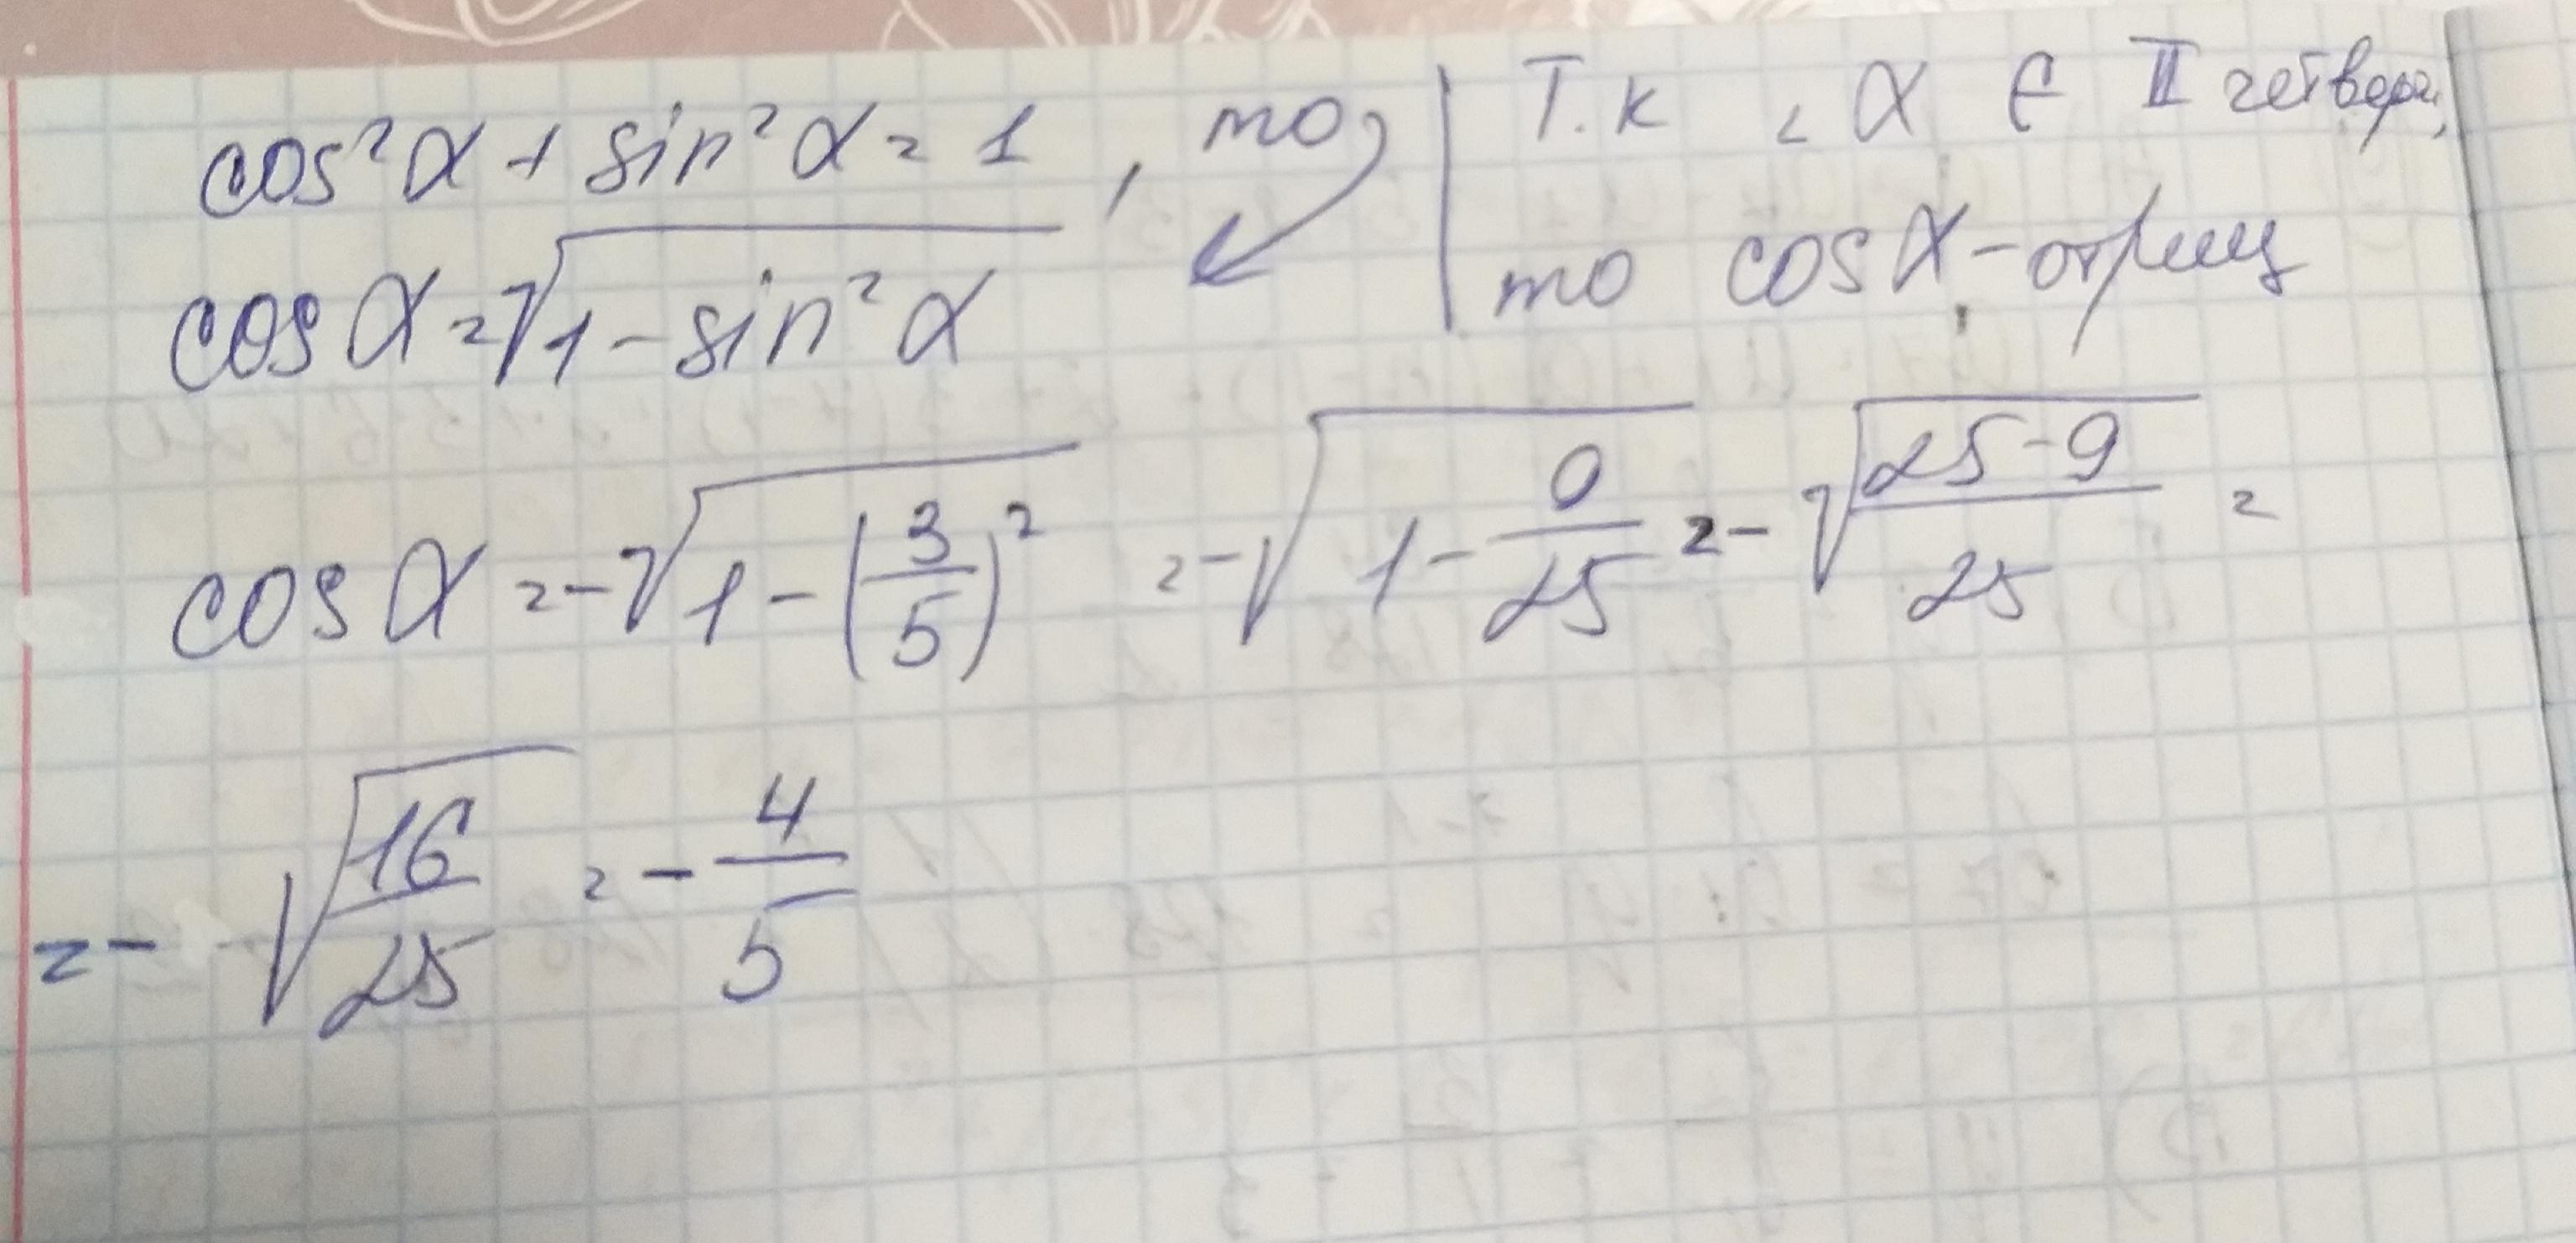 cos²α + sin²α = 1, то
cos α = √(1 - sin²α)
Т.к ∠ α ∈ II четверт,
то cos α - отриц
cos α = -√(1 - (3/5)²) = -√(1 - 9/25) = -√((25-9)/25) =
= -√(16/25) = -4/5